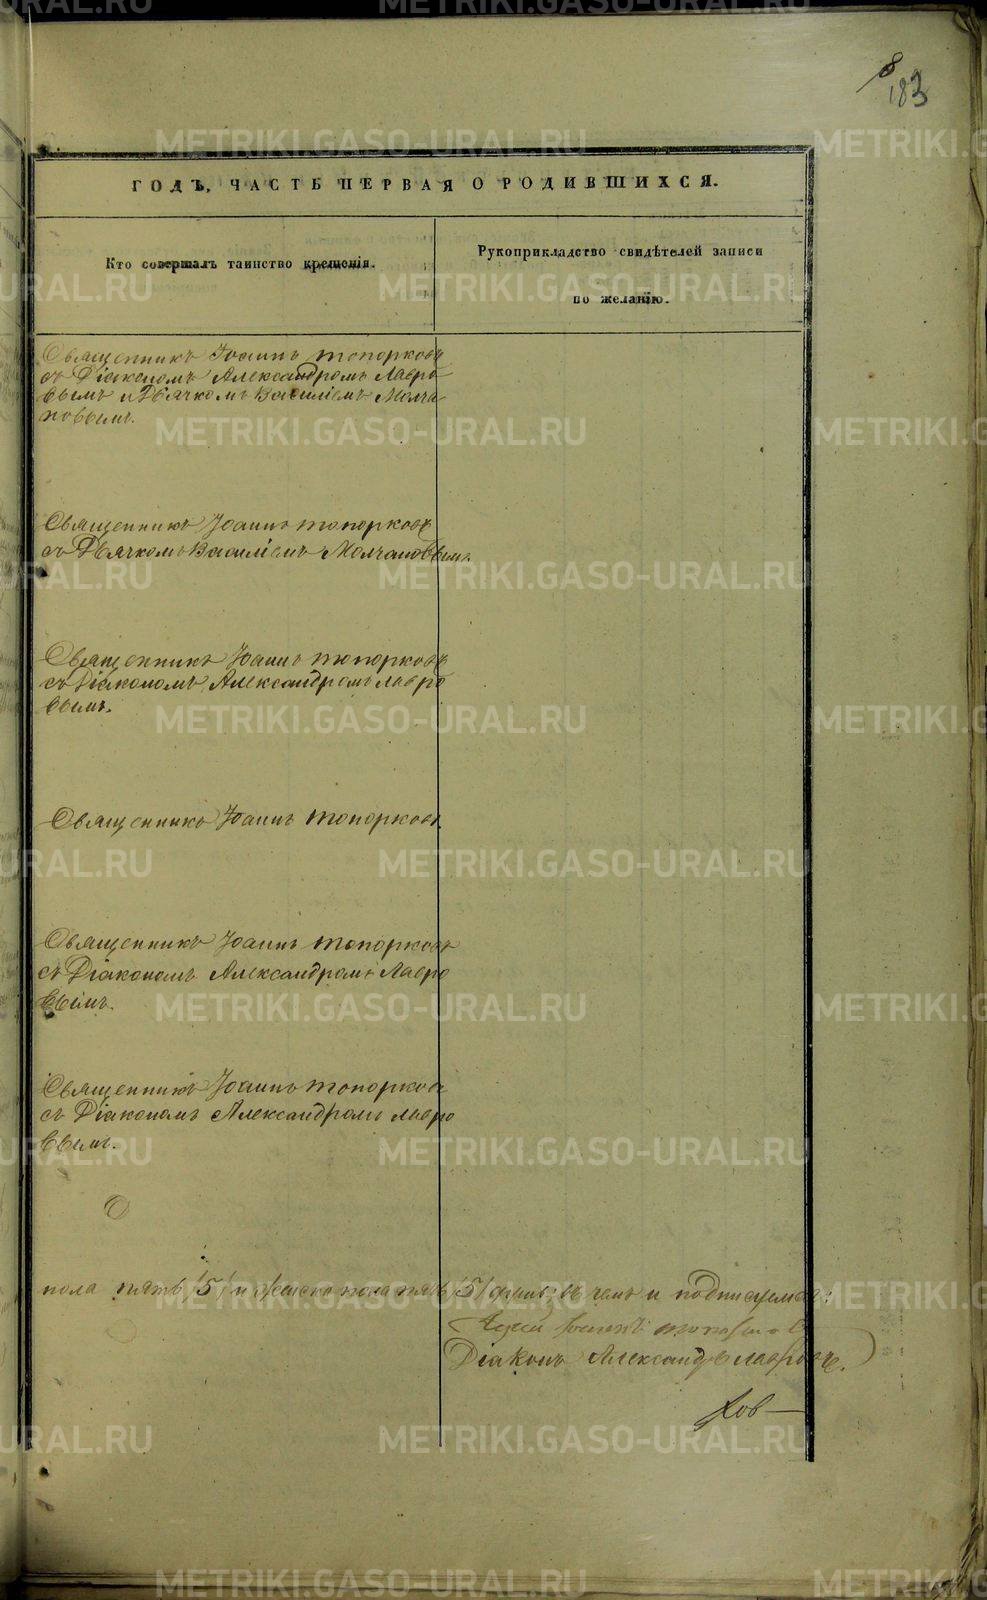 8
183
ГОДЪ, ЧАСТЬ ПЕРВАЯ О РОДИВШИХСЯ.
Кто совершалъ таинство крещенія.
Рукоприкладство свидѣтелей записи
по желанію.
Священникъ Іоаннъ Топорковъ
съ Діакономъ Александромъ Лавро
вымъ и Дьячкомъ Василіемъ Молча-
новымъ.
Священникъ Іоаннъ Топорковъ
съ Дьячкомъ Василіемъ Молчановымъ.
Священникъ Іоаннъ Топорковъ
съ Діакономъ Александромъ Лавро
вымъ.
Священникъ Іоаннъ Топорковъ.
Священникъ Іоаннъ Топорковъ
съ Діакономъ Александромъ Лавро
вымъ.
Священникъ Іоаннъ Топорковъ
съ Діакономъ Александромъ Лавро
вымъ.
пола пять /5/ и женска пола пять /5/ душъ; въ чемъ и подписуемся:
Іоаннъ
Діаконъ Александръ Лавровъ.
METRIKI.GASO-URAL.RU